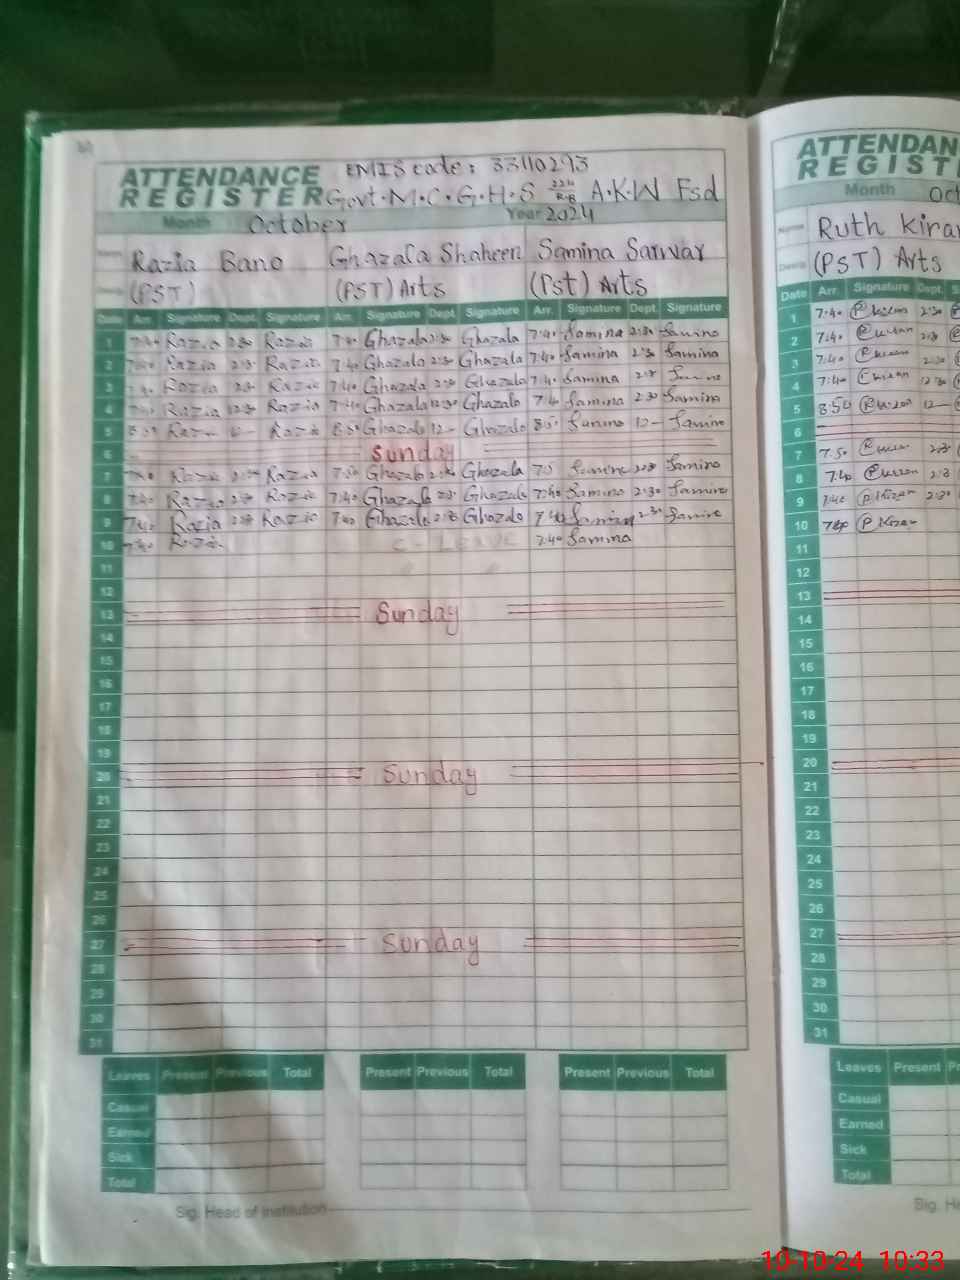 ATTENDANCE REGISTER EMIS code: 33110293
Govt.M.C.G.H.S 224 R.B A.K.W Fsd
Month October Year 2024
Name Razia Bano Ghazala Shaheen Samina Sarwar
(PST) (PST) Arts (Pst) Arts
Date Arr. Signature Dept. Signature Arr. Signature Dept. Signature Arr. Signature Dept. Signature
1 7:40 Razia 2:30 Razia 7:40 Ghazala 2:30 Ghazala 7:40 Samina 2:30 Samina
2 7:40 Razia 2:30 Razia 7:40 Ghazala 2:30 Ghazala 7:40 Samina 2:30 Samina
3 7:40 Razia Razia 7:40 Ghazala 2:30 Ghazala 7:40 Samina Samina
4 Razia 12:30 Razia 7:40 Ghazala 12:30 Ghazala 7:40 Samina 2:30 Samina
5 8:50 Razia 12- Razia 8:50 Ghazala 12- Ghazala 8:50 Samina 12- Samina
6 Sunday
7 Razia Razia 7:50 Ghazala Ghazala Samina 2:30 Samina
8 7:40 Razia 2:30 Razia 7:40 Ghazala 2:30 Ghazala 7:40 Samina 2:30 Samina
9 7:40 Razia 2:30 Razia 7:40 Ghazala 2:30 Ghazala 7:40 Samina 2:30 Samina
10 7:40 Razia C-LEAVE 7:40 Samina
11
12
13 Sunday
14
15
16
17
18
19
20 Sunday
21
22
23
24
25
26
27 Sunday
28
29
30
31
Leaves Present Previous Total Present Previous Total Present Previous Total
Casual
Earned
Sick
Total
Sig. Head of institution
ATTENDAN
REGIST
Month Oct
Name Ruth Kiran
(PST) Arts
Date Arr. Signature Dept. S
1 7:40 P Kiran 2:30
2 7:40 P Kiran 2:30
3 7:40 P Kiran 2:30
4 7:40 P Kiran 12:30
5 8:50 P Kiran 12-
6
7 7:50 P Kiran 2:30
8 7:40 P Kiran 2:3
9 7:40 P Kiran 2:30
10 7:40 P Kiran
11
12
13
14
15
16
17
18
19
20
21
22
23
24
25
26
27
28
29
30
31
Leaves Present Pr
Casual
Earned
Sick
Total
Sig. He
10-10-24 10:33